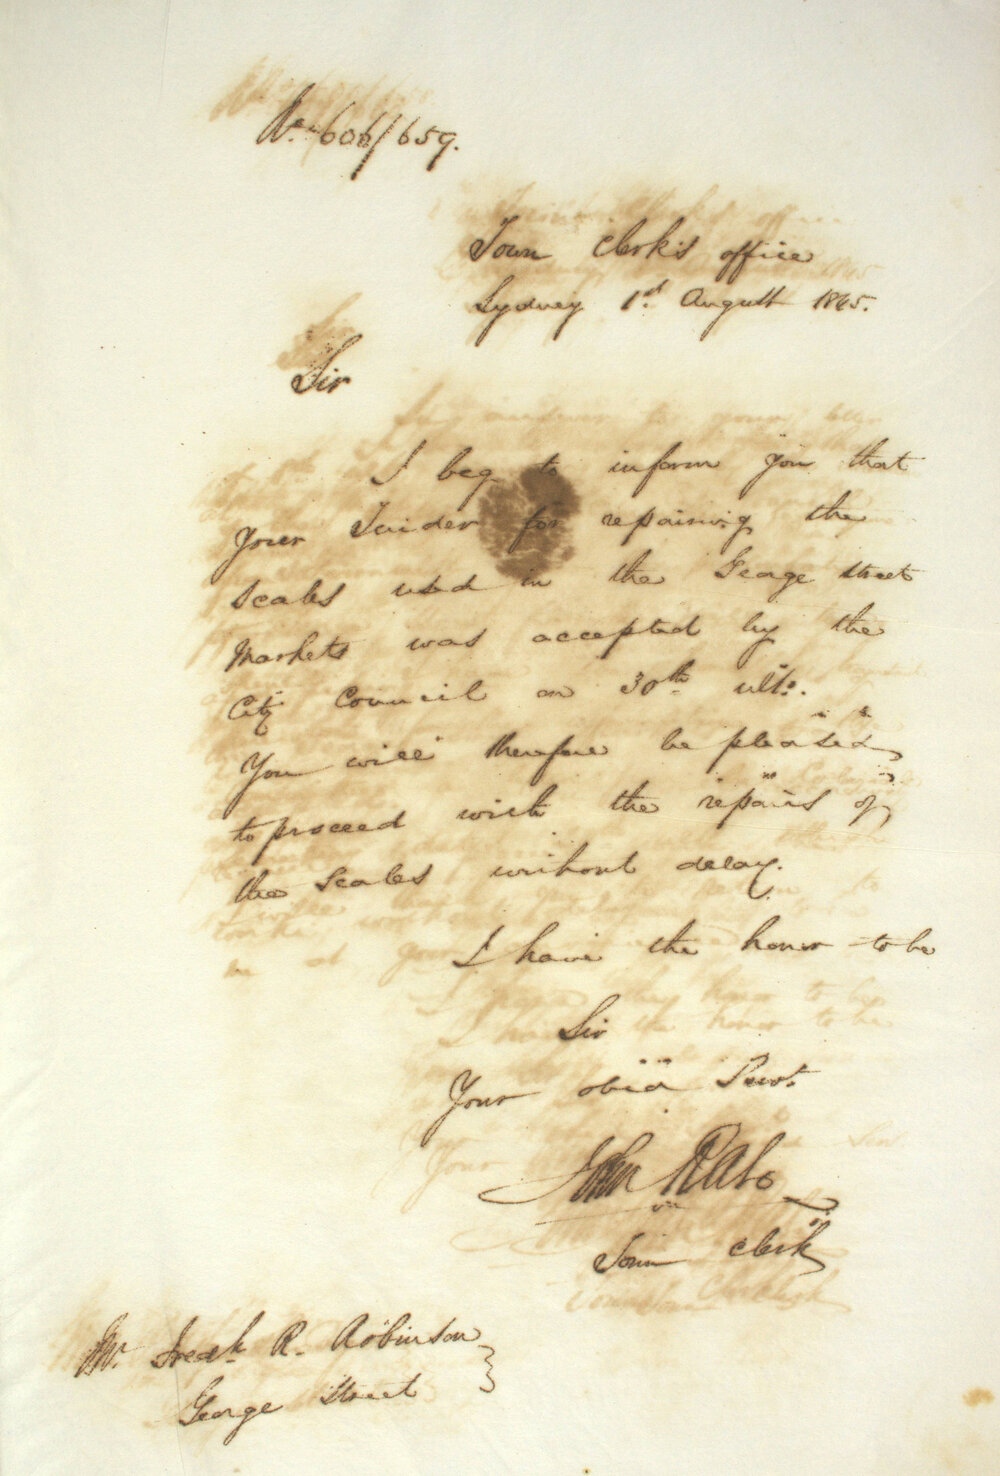 No. 606/659.
Town Clerk's office
Sydney 1st. August 1865.
Sir
I beg to inform you that
your Tender for repairing the
scales used in the George street
Markets was accepted by the
City Council on 30th ulto.
You will therefore be pleased
to proceed with the repairs of
the scales without delay.
I have the honor to be
Sir
Your obed Servt.
John Rae
Town Clerk
Mr. Fredk. R. Robinson
George Street